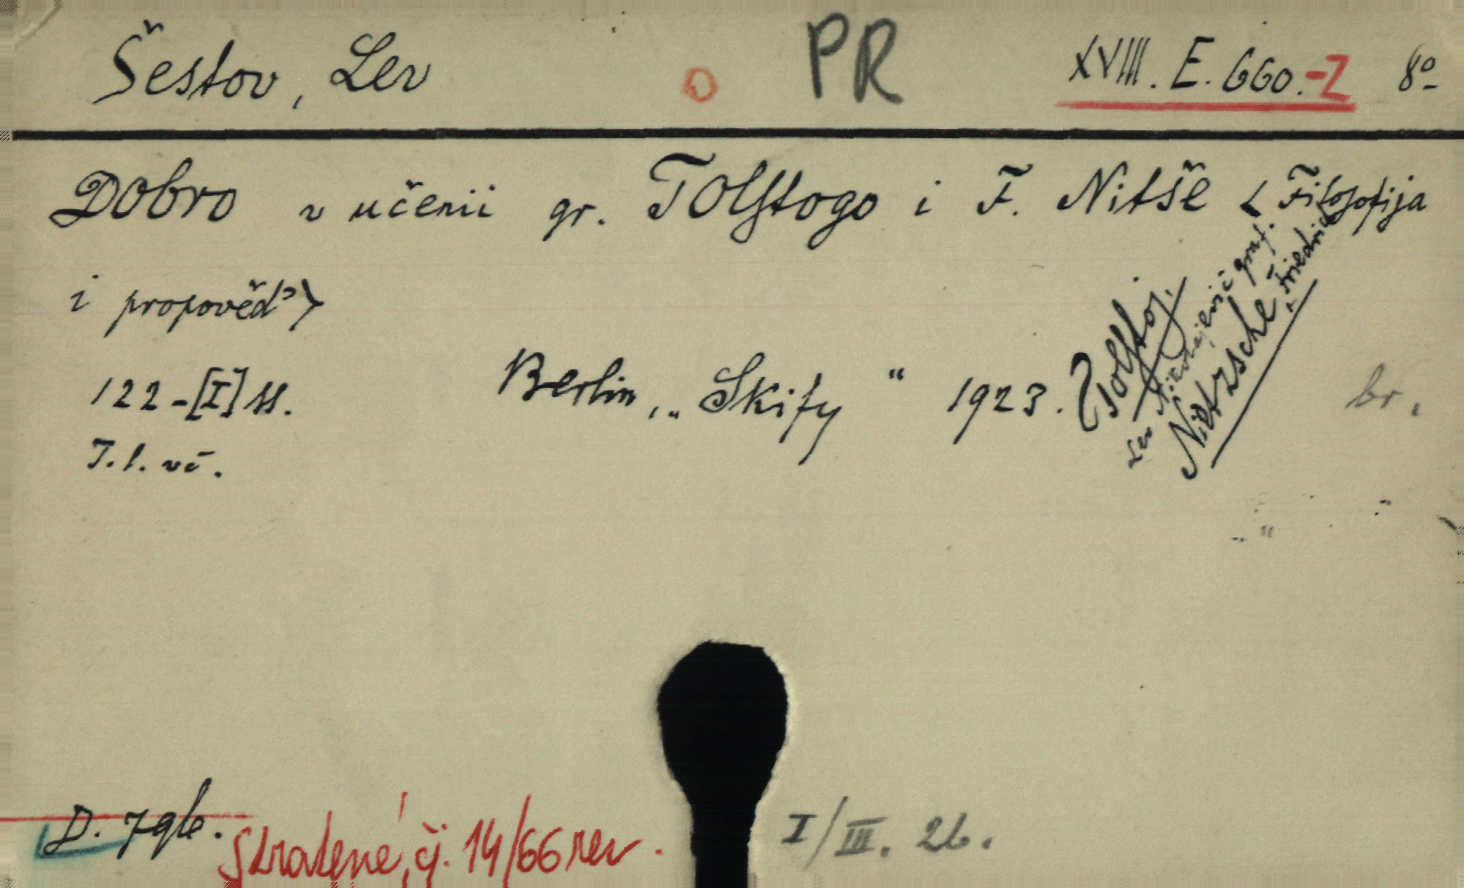 Šestov, Lev
o
PR
XVIII. E. 660.-Z 8º
Dobro v učenii gr. Tolstogo i F. Nitše <Filosofija
i propověd'>
122-[I] ss. Berlin, „Skify“ 1923. br.
Tolstoj,
Lev Nikolajevič graf.
Nietzsche, Friedrich
T. l. vč.
D. 796.
Ztracené, čj. 14/66 rev.
I/III. 26.